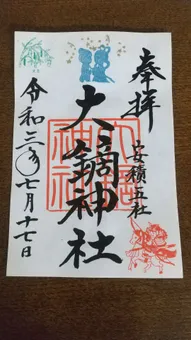 奉拝
安積五社
大鏑神社
令和三年七月十七日